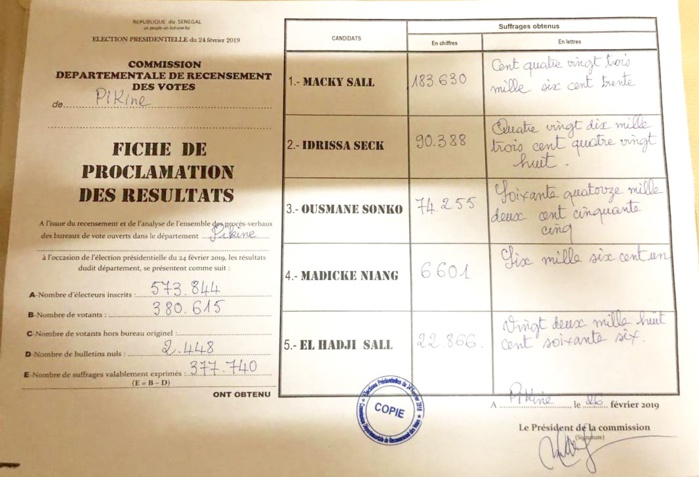 REPUBLIQUE du SENEGAL
ELECTION PRESIDENTIELLE du 24 février 2019
COMMISSION
DEPARTEMENTALE DE RECENSEMENT
DES VOTES
de Pikine
FICHE DE
PROCLAMATION
DES RESULTATS
A l'issue du recensement et de l'analyse de l'ensemble des procès-verbaux
des bureaux de vote ouverts dans le département Pikine
à l'occasion de l'élection présidentielle du 24 février 2019, les résultats
dudit département, se présentent comme suit :
A-Nombre d'électeurs inscrits : 573.844
B-Nombre de votants : 380.615
C-Nombre de votants hors bureau originel :
D-Nombre de bulletins nuls : 2.448
E-Nombre de suffrages valablement exprimés : 377.740
(E = B - D)
ONT OBTENU
CANDIDATS
Suffrages obtenus
En chiffres
En lettres
1.- MACKY SALL
183.630
Cent quatre vingt trois
mille six cent trente
2.- IDRISSA SECK
90.388
Quatre vingt dix mille
trois cent quatre vingt
huit.
3.- OUSMANE SONKO
74 255
Soixante quatorze mille
deux cent cinquante
cinq
4.- MADICKE NIANG
6601
Six mille six cent un
5.- EL HADJI SALL
22.866.
Vingt deux mille huit
cent soixante six.
COPIE
A Pikine le 26 février 2019
Le Président de la commission
(Signature)